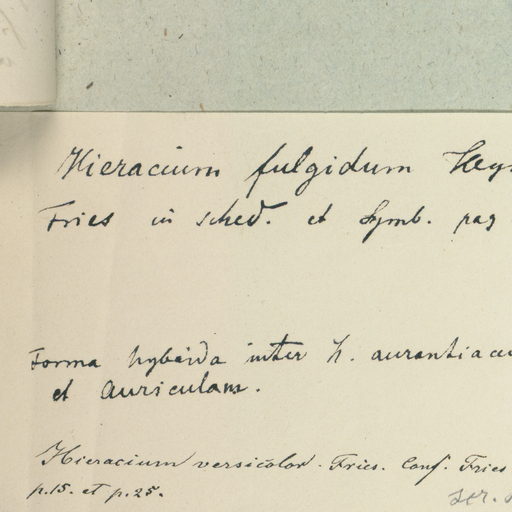 Hieracium fulgidum
Fries in sched. et Symb. pag
Forma hybrida inter H. aurantiacu
et Auriculam.
Hieracium versicolor. Fries. Conf. Fries
p.15. et p.25.